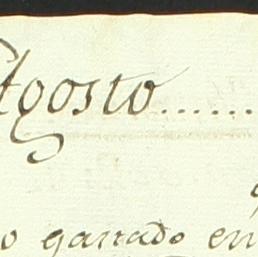 Agosto........
o garrado en